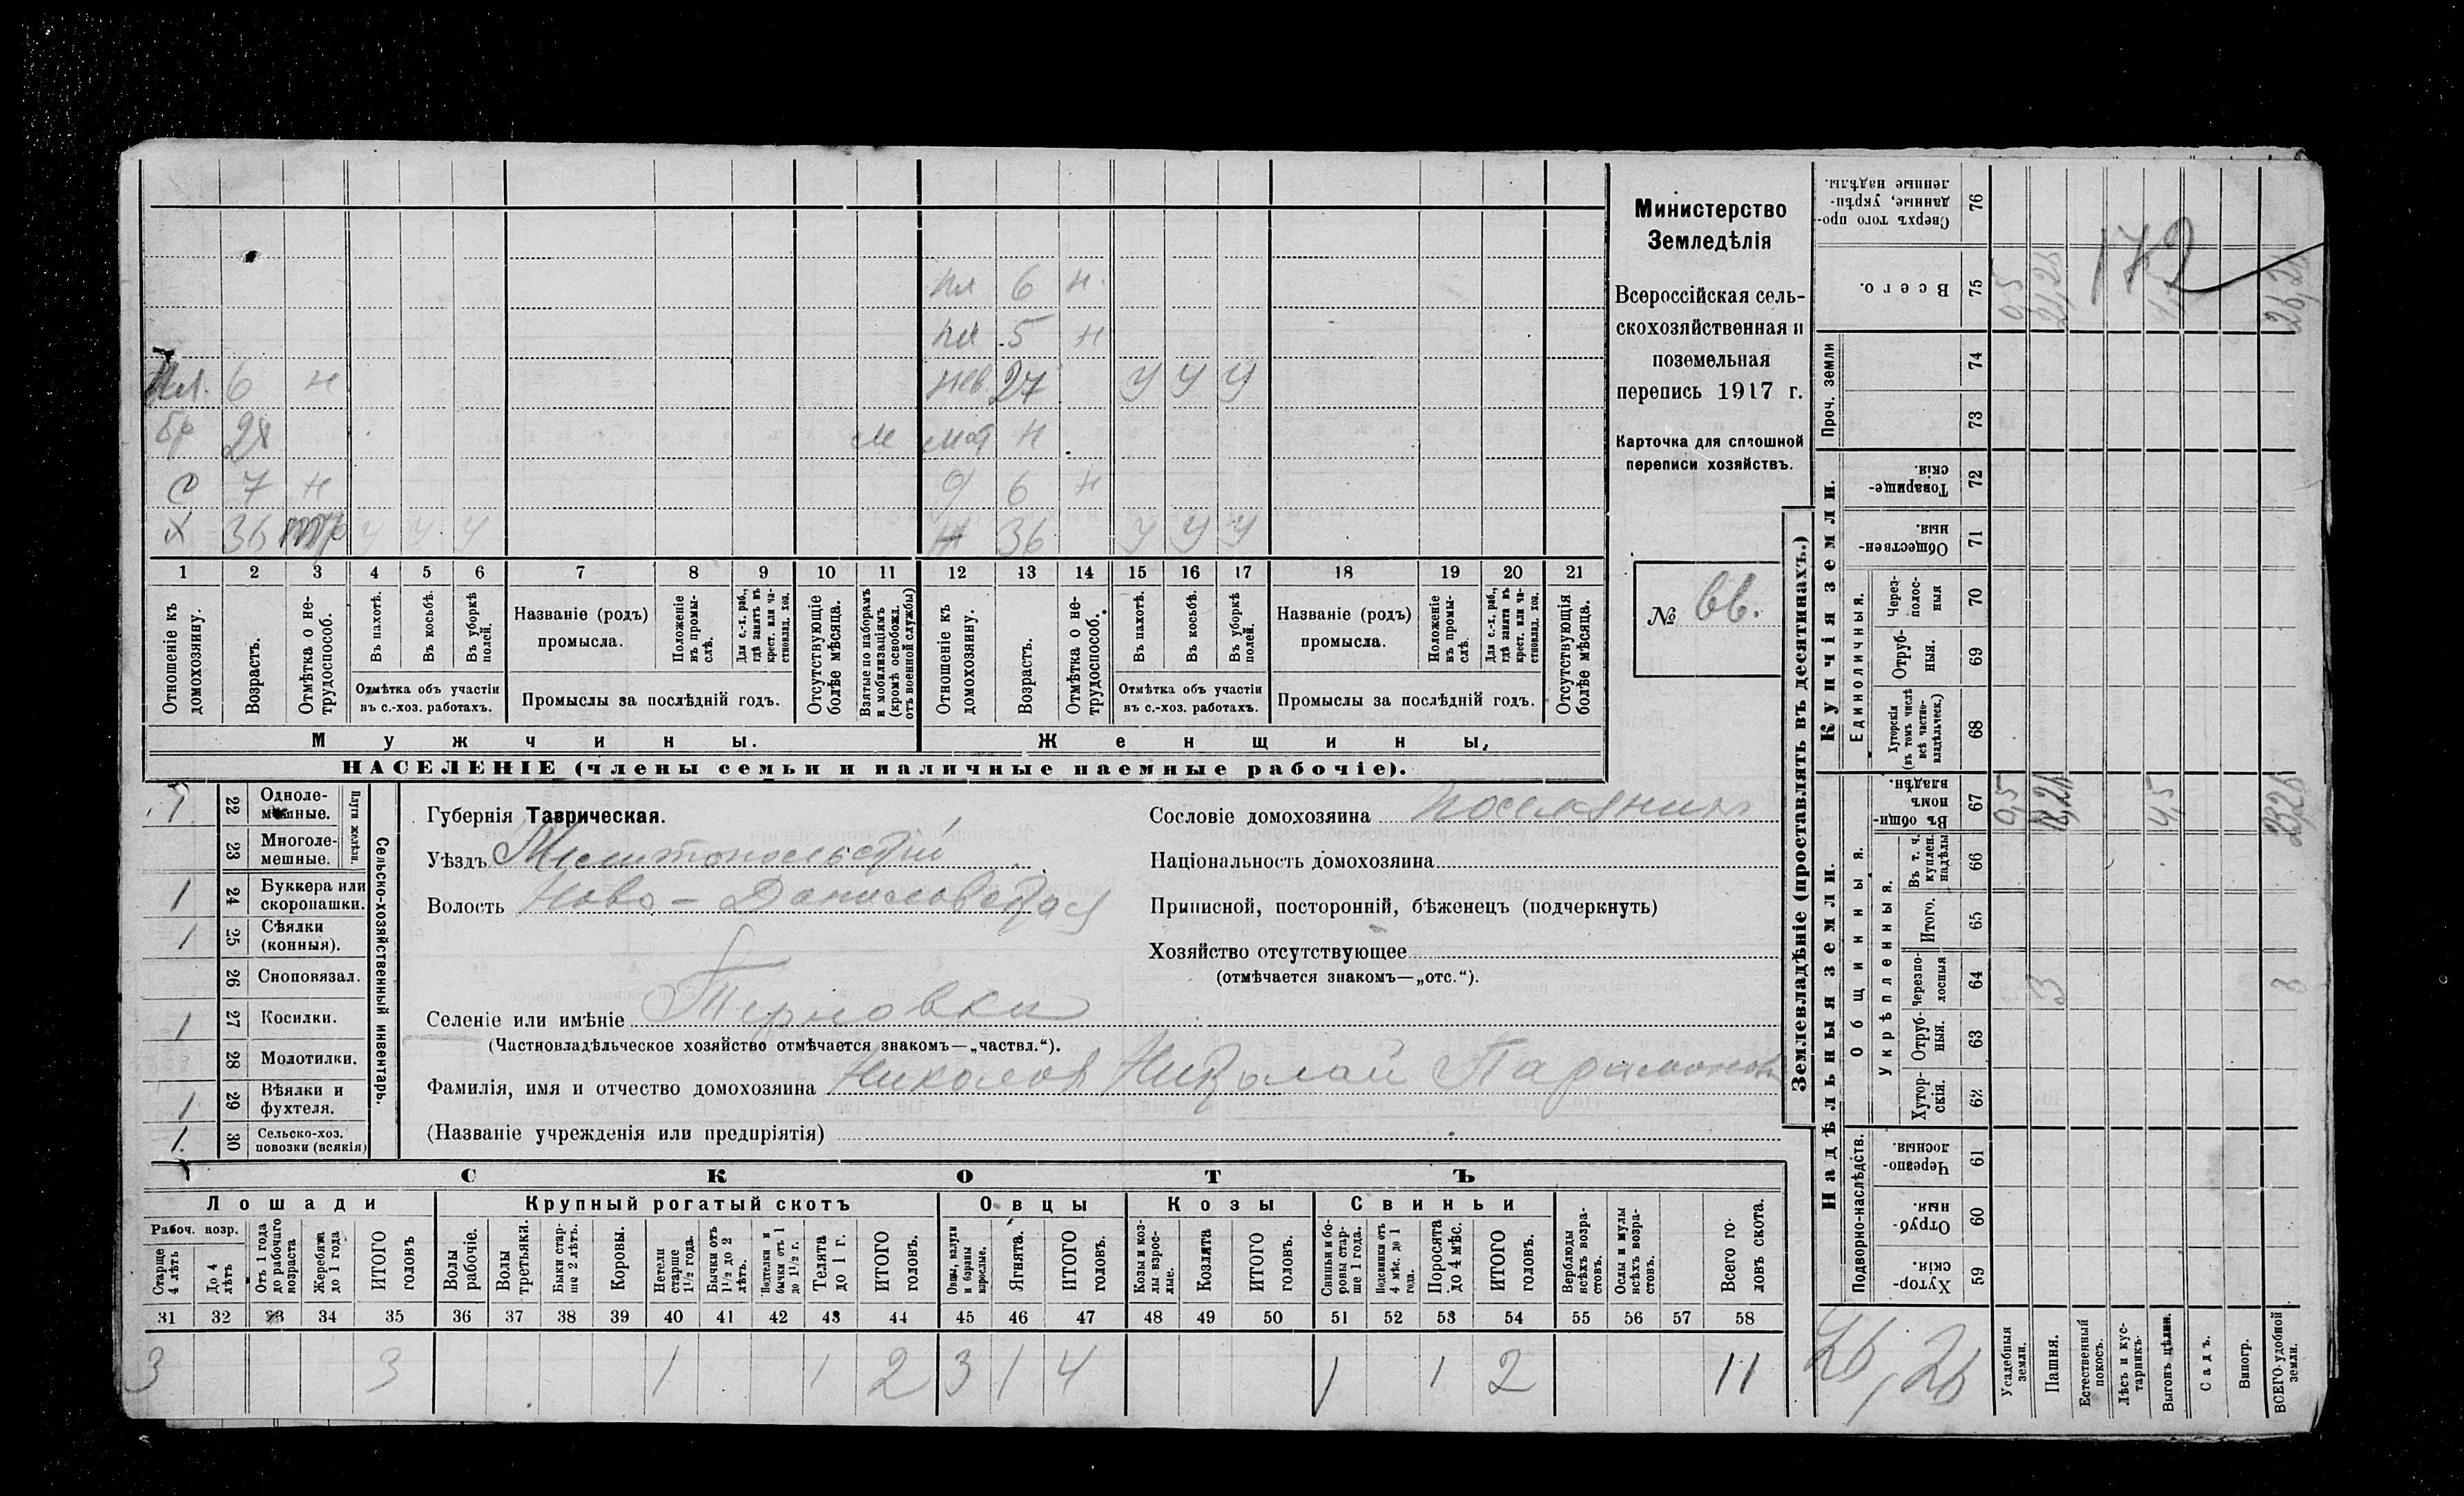 Министерство
Земледѣлія
Всероссійская сель-
скохозяйственная и
поземельная
перепись 1917 г.
Карточка для сплошной
переписи хозяйствъ.
№ 66.
172
пл 6 н.
пл 5 н
Пл. 6 н нев. 27 у у у
бр 28 м мат н
с 7 н д 6 н
х 36 у у у ж 36 у у у
1 2 3 4 5 6 7 8 9 10 11 12 13 14 15 16 17 18 19 20 21
Отношеніе къ домохозяину.
Возрастъ.
Отмѣтка о не-трудоспособ.
Въ пахотѣ.
Въ косьбѣ.
Въ уборкѣ полей.
Отмѣтка объ участіи
въ с.-хоз. работахъ.
Названіе (родъ)
промысла.
Положеніе въ промы-слѣ.
Для с.-х. раб., гдѣ занятъ въ крест. или ча-стновлад. хоз.
Промыслы за послѣдній годъ.
Отсутствующіе болѣе мѣсяца.
Взятые по наборамъ и мобилизаціямъ (кромѣ освобожд. отъ военной службы)
Отношеніе къ домохозяину.
Возрастъ.
Отмѣтка о не-трудоспособ.
Въ пахотѣ.
Въ косьбѣ.
Въ уборкѣ полей.
Отмѣтка объ участіи
въ с.-хоз. работахъ.
Названіе (родъ)
промысла.
Положеніе въ промы-слѣ.
Для с.-х. раб., гдѣ занята въ крест. или ча-стновлад. хоз.
Промыслы за послѣдній годъ.
Отсутствующія болѣе мѣсяца.
Мужчины. Женщины.
НАСЕЛЕНІЕ (члены семьи и наличные наемные рабочіе).
Сельско-хозяйственный инвентарь.
Плуги желѣзн.
1 22 Одноле-мешные.
23 Многоле-мешные.
1 24 Буккера или скоропашки.
1 25 Сѣялки (конныя).
26 Сноповязал.
1 27 Косилки.
28 Молотилки.
1 29 Вѣялки и фухтеля.
1 30 Сельско-хоз. повозки (всякія)
Губернія Таврическая.
Уѣздъ Мелитопольскій
Волость Ново-Даниловская
Селеніе или имѣніе Терновка
(Частновладѣльческое хозяйство отмѣчается знакомъ—„частвл.“).
Фамилія, имя и отчество домохозяина Николов Николай Парамонов
(Названіе учрежденія или предпріятія)
Сословіе домохозяина поселянин
Національность домохозяина
Приписной, посторонній, бѣженецъ (подчеркнуть)
Хозяйство отсутствующее
(отмѣчается знакомъ—„отс.“).
СКОТЪ
Лошади Крупный рогатый скотъ Овцы Козы Свиньи
Рабоч. возр.
Старше 4 лѣтъ
До 4 лѣтъ
Отъ 1 года до рабочаго возраста
Жеребята до 1 года
ИТОГО головъ
Волы рабочіе.
Волы третьяки.
Быки стар-ше 2 лѣтъ.
Коровы.
Нетели старше 1½ года.
Бычки отъ 1½ до 2 лѣтъ.
Подтелки и бычки отъ 1 до 1½ г.
Телята до 1 г.
ИТОГО головъ.
Овцы, валухи и бараны взрослые.
Ягнята.
ИТОГО головъ.
Козы и коз-лы взрос-лые.
Козлята
ИТОГО головъ.
Свиньи и бо-ровы стар-ше 1 года.
Подсвинки отъ 4 мѣс. до 1 года.
Поросята до 4 мѣс.
ИТОГО головъ.
Верблюды всѣхъ возра-стовъ.
Ослы и мулы всѣхъ возра-стовъ.
Всего го-ловъ скота.
31 32 33 34 35 36 37 38 39 40 41 42 43 44 45 46 47 48 49 50 51 52 53 54 55 56 57 58
3 3 1 1 2 3 1 4 1 1 2 11
Землевладѣніе (проставлять въ десятинахъ.)
Надѣльныя земли. Купчія земли.
Проч. земли
Общинныя.
Укрѣпленныя.
Единоличныя.
Подворно-наслѣдств.
Сверхъ того про-данные, укрѣп-ленные надѣлы. 76
Всего. 75 0,5 21,25 4,5 26,25
74
73
Товарище-скія. 72
Обществен-ныя. 71
Через-полос-ныя 70
Отруб-ныя. 69
Хуторскія (въ томъ числѣ всѣ частно-владѣльческ.) 68
Въ общи-номъ владѣн. 67 0,5 18,25 4,5 23,25
Въ т. ч. куплен. надѣлы 66
Итого. 65
Черезпо-лосныя 64 3 3
Отруб-ныя. 63
Хутор-скія. 62
Черезпо-лосныя 61
Отруб-ныя. 60
Хутор-скія. 59
26,26
Усадебныя земли.
Пашня.
Естественный покосъ.
Лѣсъ и кус-тарникъ.
Выгонъ цѣлин.
Садъ.
Виногр.
ВСЕГО удобной земли.